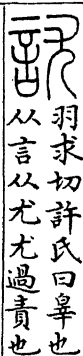 訧
羽求切許氏曰辠也
从言从尤尤過責也